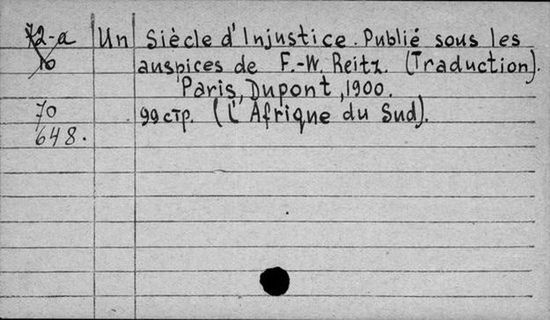 72-a Un Siècle d'Injustice. Publié sous les
10 auspices de F.-W. Reitz. (Traduction).
Paris, Dupont, 1900.
70 99 стр. (L'Afrique du Sud).
648.